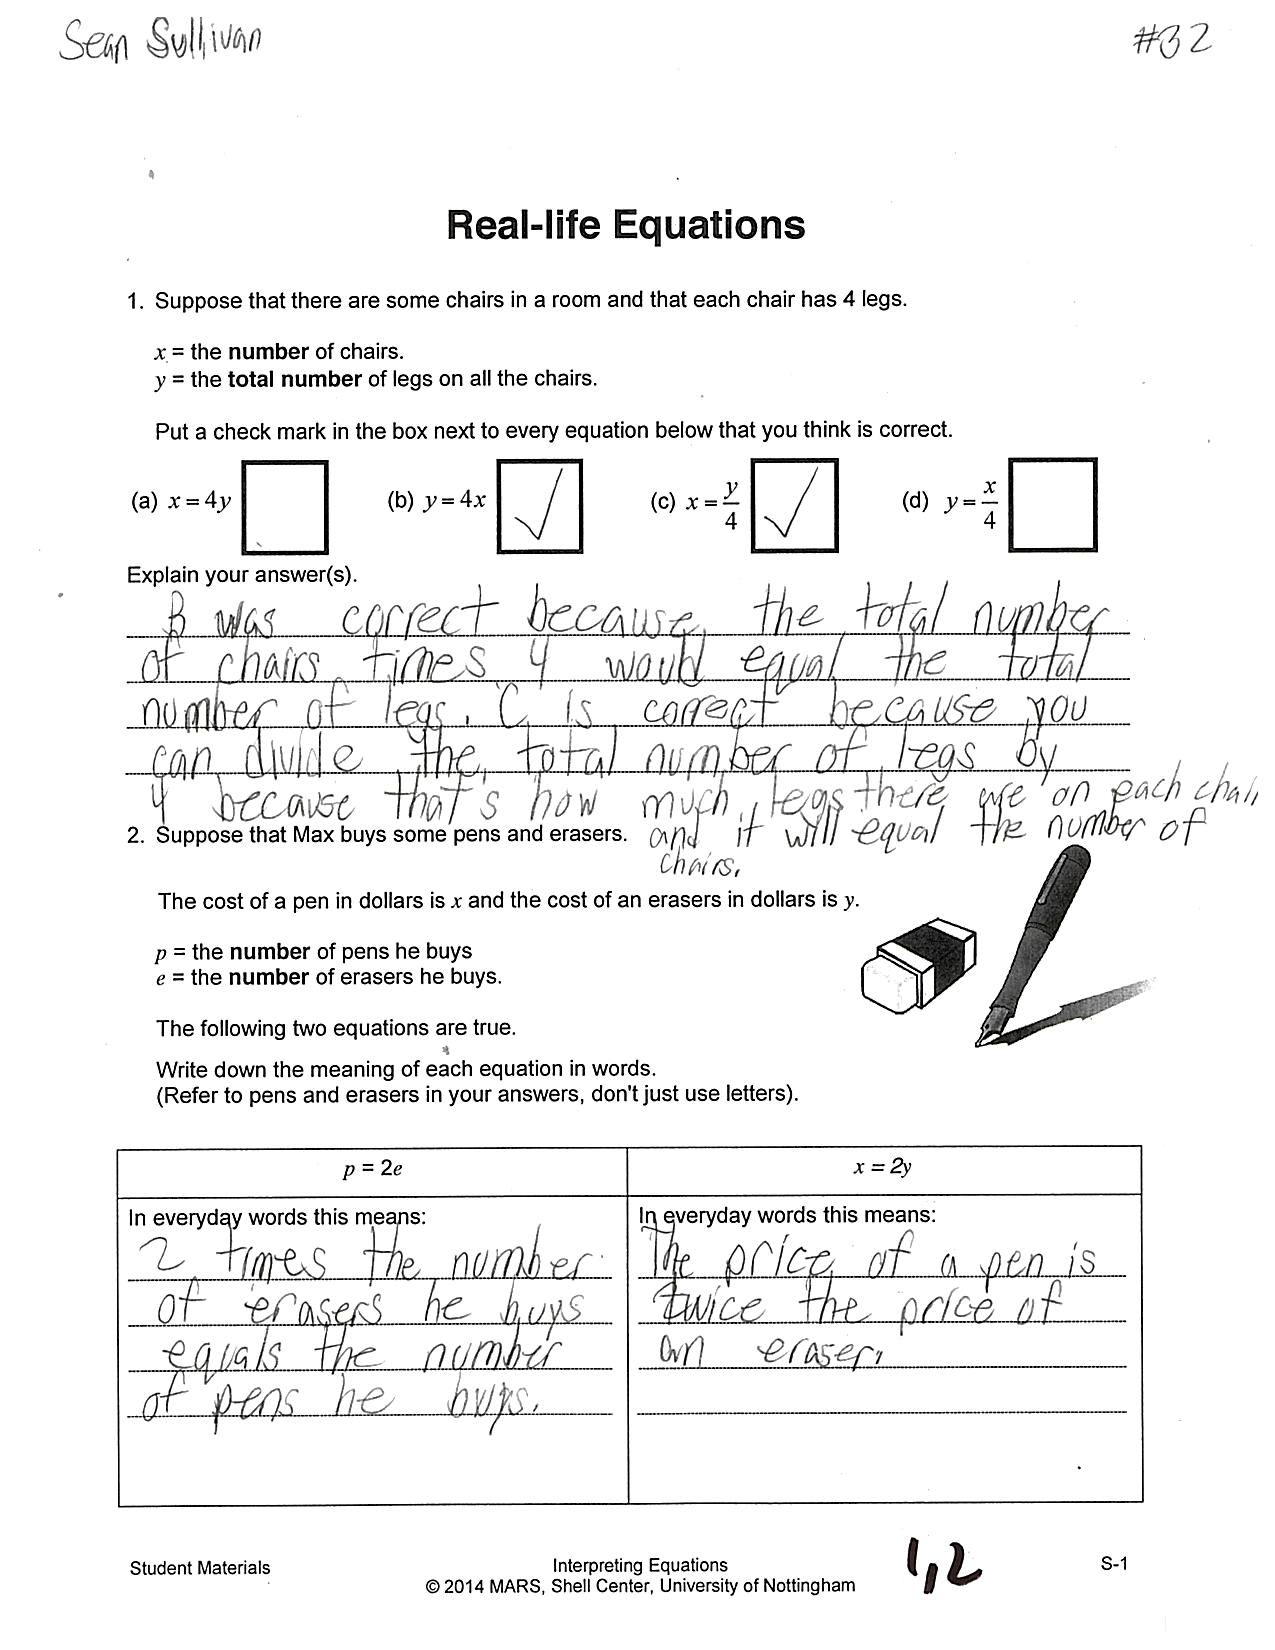 Sean Sullivan #32
Real-life Equations
1. Suppose that there are some chairs in a room and that each chair has 4 legs.
x = the number of chairs.
y = the total number of legs on all the chairs.
Put a check mark in the box next to every equation below that you think is correct.
(a) x = 4y (b) y = 4x ✓ (c) x = y/4 ✓ (d) y = x/4
Explain your answer(s).
B was correct because the total number
of chairs times 4 would equal the total
number of legs. C is correct because you
can divide the total number of legs by
4 because that's how much legs there are on each chair
and it will equal the number of
chairs.
2. Suppose that Max buys some pens and erasers.
The cost of a pen in dollars is x and the cost of an erasers in dollars is y.
p = the number of pens he buys
e = the number of erasers he buys.
The following two equations are true.
Write down the meaning of each equation in words.
(Refer to pens and erasers in your answers, don't just use letters).
p = 2e
In everyday words this means:
2 times the number
of erasers he buys
equals the number
of pens he buys.
x = 2y
In everyday words this means:
The price of a pen is
twice the price of
an eraser.
Student Materials
Interpreting Equations
© 2014 MARS, Shell Center, University of Nottingham
1,2
S-1